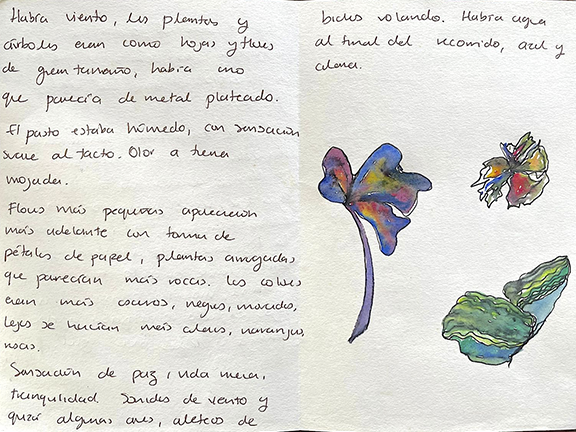 Había viento, las plantas y
árboles eran como hojas y flores
de gran tamaño, había uno
que parecía de metal plateado.
El pasto estaba húmedo, con sensación
suave al tacto. Olor a tierra
mojada.
Flores más pequeñas aparecieron
más adelante con forma de
pétalos de papel, plantas arrugadas
que parecían más rocas. Los colores
eran más oscuros, negros, morados,
lejos se hacían más claros, naranjas,
rosas.
Sensación de paz, vida nueva,
tranquilidad. Sonidos de viento y
quizá algunas aves, aleteos de
bichos volando. Había agua
al final del recorrido, azul y
clara.